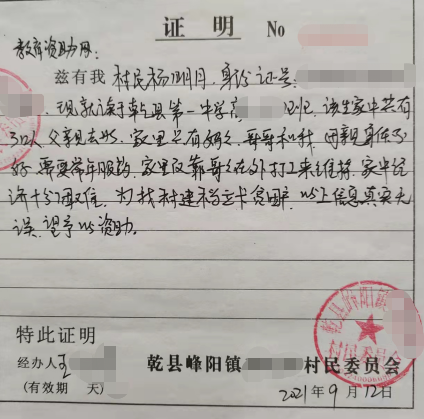 证明 No
教育资助网:
兹有我 村民杨明月 身份证号:
现就读于乾县第一中学高 班, 该生家中共有
3口人 父亲已去世, 家里只有妈妈, 哥哥和我, 母亲身体不
好 需要常年服药, 家里仅靠哥哥在外打工来维持, 家中经
济十分困难, 为我村建档立卡贫困户, 以上信息真实无
误, 望予以资助。
特此证明
经办人 王
乾县峰阳镇 村民委员会
(有效期 天)
2021年9月12日
乾县峰阳镇
村民委员会